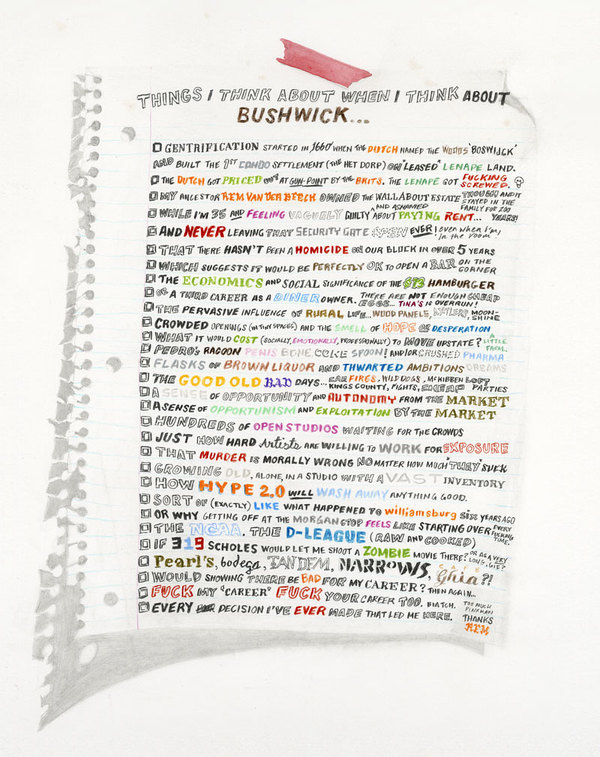 THINGS I THINK ABOUT WHEN I THINK ABOUT
BUSHWICK...
GENTRIFICATION STARTED IN 1660 WHEN THE DUTCH NAMED THE WOODS "BOSWIJCK"
AND BUILT THE 1ST CONDO SETTLEMENT (THE HET DORP) ON "LEASED" LENAPE LAND.
THE DUTCH GOT PRICED OUT AT GUN-POINT BY THE BRITS. THE LENAPE GOT FUCKING SCREWED.
MY ANCESTOR REM VAN DER BEECK OWNED THE WALLABOUT ESTATE THOUGH AND IT STAYED IN THE FAMILY FOR 200 YEARS!
WHILE I'M 35 AND FEELING VAGUELY GUILTY AND ASHAMED ABOUT PAYING RENT...
AND NEVER LEAVING THAT SECURITY GATE OPEN EVER! (even when I'm in the room)
THAT THERE HASN'T BEEN A HOMICIDE ON OUR BLOCK IN OVER 5 YEARS
WHICH SUGGESTS IT WOULD BE PERFECTLY OK TO OPEN A BAR ON THE CORNER
THE ECONOMICS AND SOCIAL SIGNIFICANCE OF THE $13 HAMBURGER
OR A THIRD CAREER AS A DINER OWNER. THERE ARE NOT ENOUGH CHEAP EGGS... TINA'S IS OVERRUN!
THE PERVASIVE INFLUENCE OF RURAL LIFE... WOOD PANELS, MOONSHINE
CROWDED OPENINGS (IN TINY SPACES) AND THE SMELL OF HOPE OR DESPERATION
WHAT IT WOULD COST (SOCIALLY, EMOTIONALLY, PROFESSIONALLY) TO MOVE UPSTATE? A LITTLE FARM.
PEDRO'S RACOON PENIS BONE COKE SPOON! AND/OR CRUSHED PHARMA
FLASKS OF BROWN LIQUOR AND THWARTED AMBITIONS DREAMS
THE GOOD OLD BAD DAYS... CAR FIRES, WILD DOGS, MCKIBBEN LOFT PARTIES KINGS COUNTY, FIGHTS, CHEAP
A SENSE OF OPPORTUNITY AND AUTONOMY FROM THE MARKET
A SENSE OF OPPORTUNISM AND EXPLOITATION BY THE MARKET
HUNDREDS OF OPEN STUDIOS WAITING FOR THE CROWDS
JUST HOW HARD Artists ARE WILLING TO WORK FOR EXPOSURE
THAT MURDER IS MORALLY WRONG NO MATTER HOW MUCH "THEY" SUCK
GROWING OLD, ALONE, IN A STUDIO WITH A VAST INVENTORY
HOW HYPE 2.0 WILL WASH AWAY ANYTHING GOOD.
SORT OF (EXACTLY) LIKE WHAT HAPPENED TO williamsburg SIX YEARS AGO
OR WHY GETTING OFF AT THE MORGAN STOP FEELS LIKE STARTING OVER EVERY FUCKING TIME.
THE NCAA. THE D-LEAGUE (RAW AND COOKED)
IF 319 SCHOLES WOULD LET ME SHOOT A ZOMBIE MOVIE THERE? OR AS A VERY LONG, LIFE?
Pearl's, bodega, TANDEM, NARROWS, Ghia?!
WOULD SHOWING THERE BE BAD FOR MY CAREER? THEN AGAIN...
FUCK MY "CAREER" FUCK YOUR CAREER TOO. BIATCH. TOO MUCH PINKMAN
EVERY DECISION I'VE EVER MADE THAT LED ME HERE. THANKS